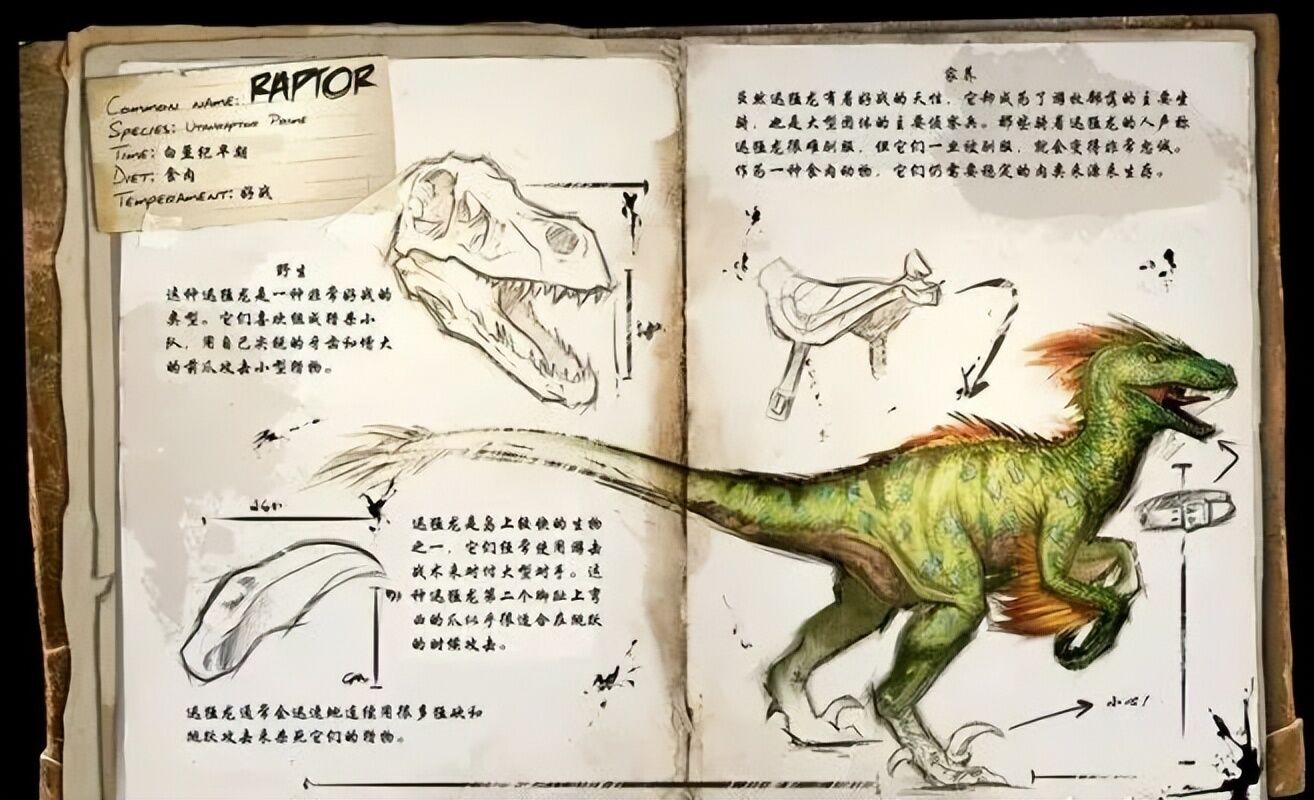 COMMON NAME: RAPTOR
SPECIES: UTAHRAPTOR PRIME
TIME: 白垩纪早期
DIET: 食肉
TEMPERAMENT: 好战
野生
这种迅猛龙是一种非常好战的
类型。它们喜欢组成猎杀小
队，用自己尖锐的牙齿和增大
的前爪攻击小型猎物。
迅猛龙是岛上较快的生物
之一，它们经常使用游击
战术来对付大型对手。这
种迅猛龙第二个脚趾上弯
曲的爪似乎很适合在跳跃
的时候攻击。
迅猛龙通常会迅速地连续用很多猛砍和
跳跃攻击来杀死它们的猎物。
家养
虽然迅猛龙有着好战的天性，它却成为了游牧部落的主要坐
骑，也是大型团体的主要侦察兵。那些骑着迅猛龙的人声称
迅猛龙很难驯服，但它们一旦被驯服，就会变得非常忠诚。
作为一种食肉动物，它们仍需要稳定的肉类来源来生存。
小心！